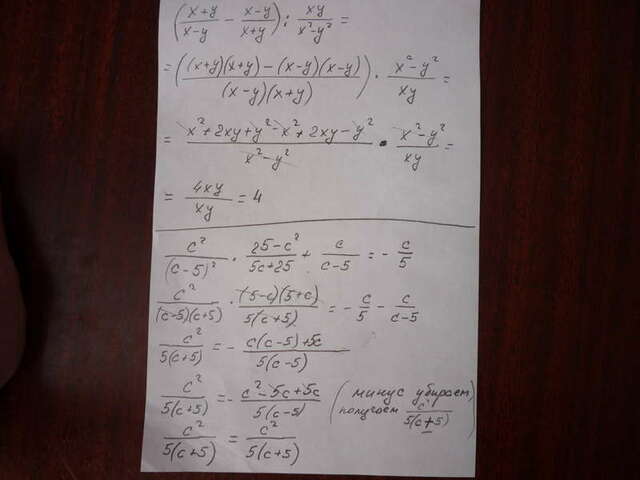 (x+y/x-y - x-y/x+y) : xy/x²-y² =
= ((x+y)(x+y)-(x-y)(x-y)/(x-y)(x+y)) · x²-y²/xy =
= x²+2xy+y²-x²+2xy-y²/x²-y² · x²-y²/xy =
= 4xy/xy = 4
c²/(c-5)² · 25-c²/5c+25 + c/c-5 = - c/5
c²/(c-5)(c+5) · (5-c)(5+c)/5(c+5) = - c/5 - c/c-5
c²/5(c+5) = - c(c-5)+5c/5(c-5)
c²/5(c+5) = - c²-5c+5c/5(c-5) (минус убираем, получаем c²/5(c+5))
c²/5(c+5) = c²/5(c+5)